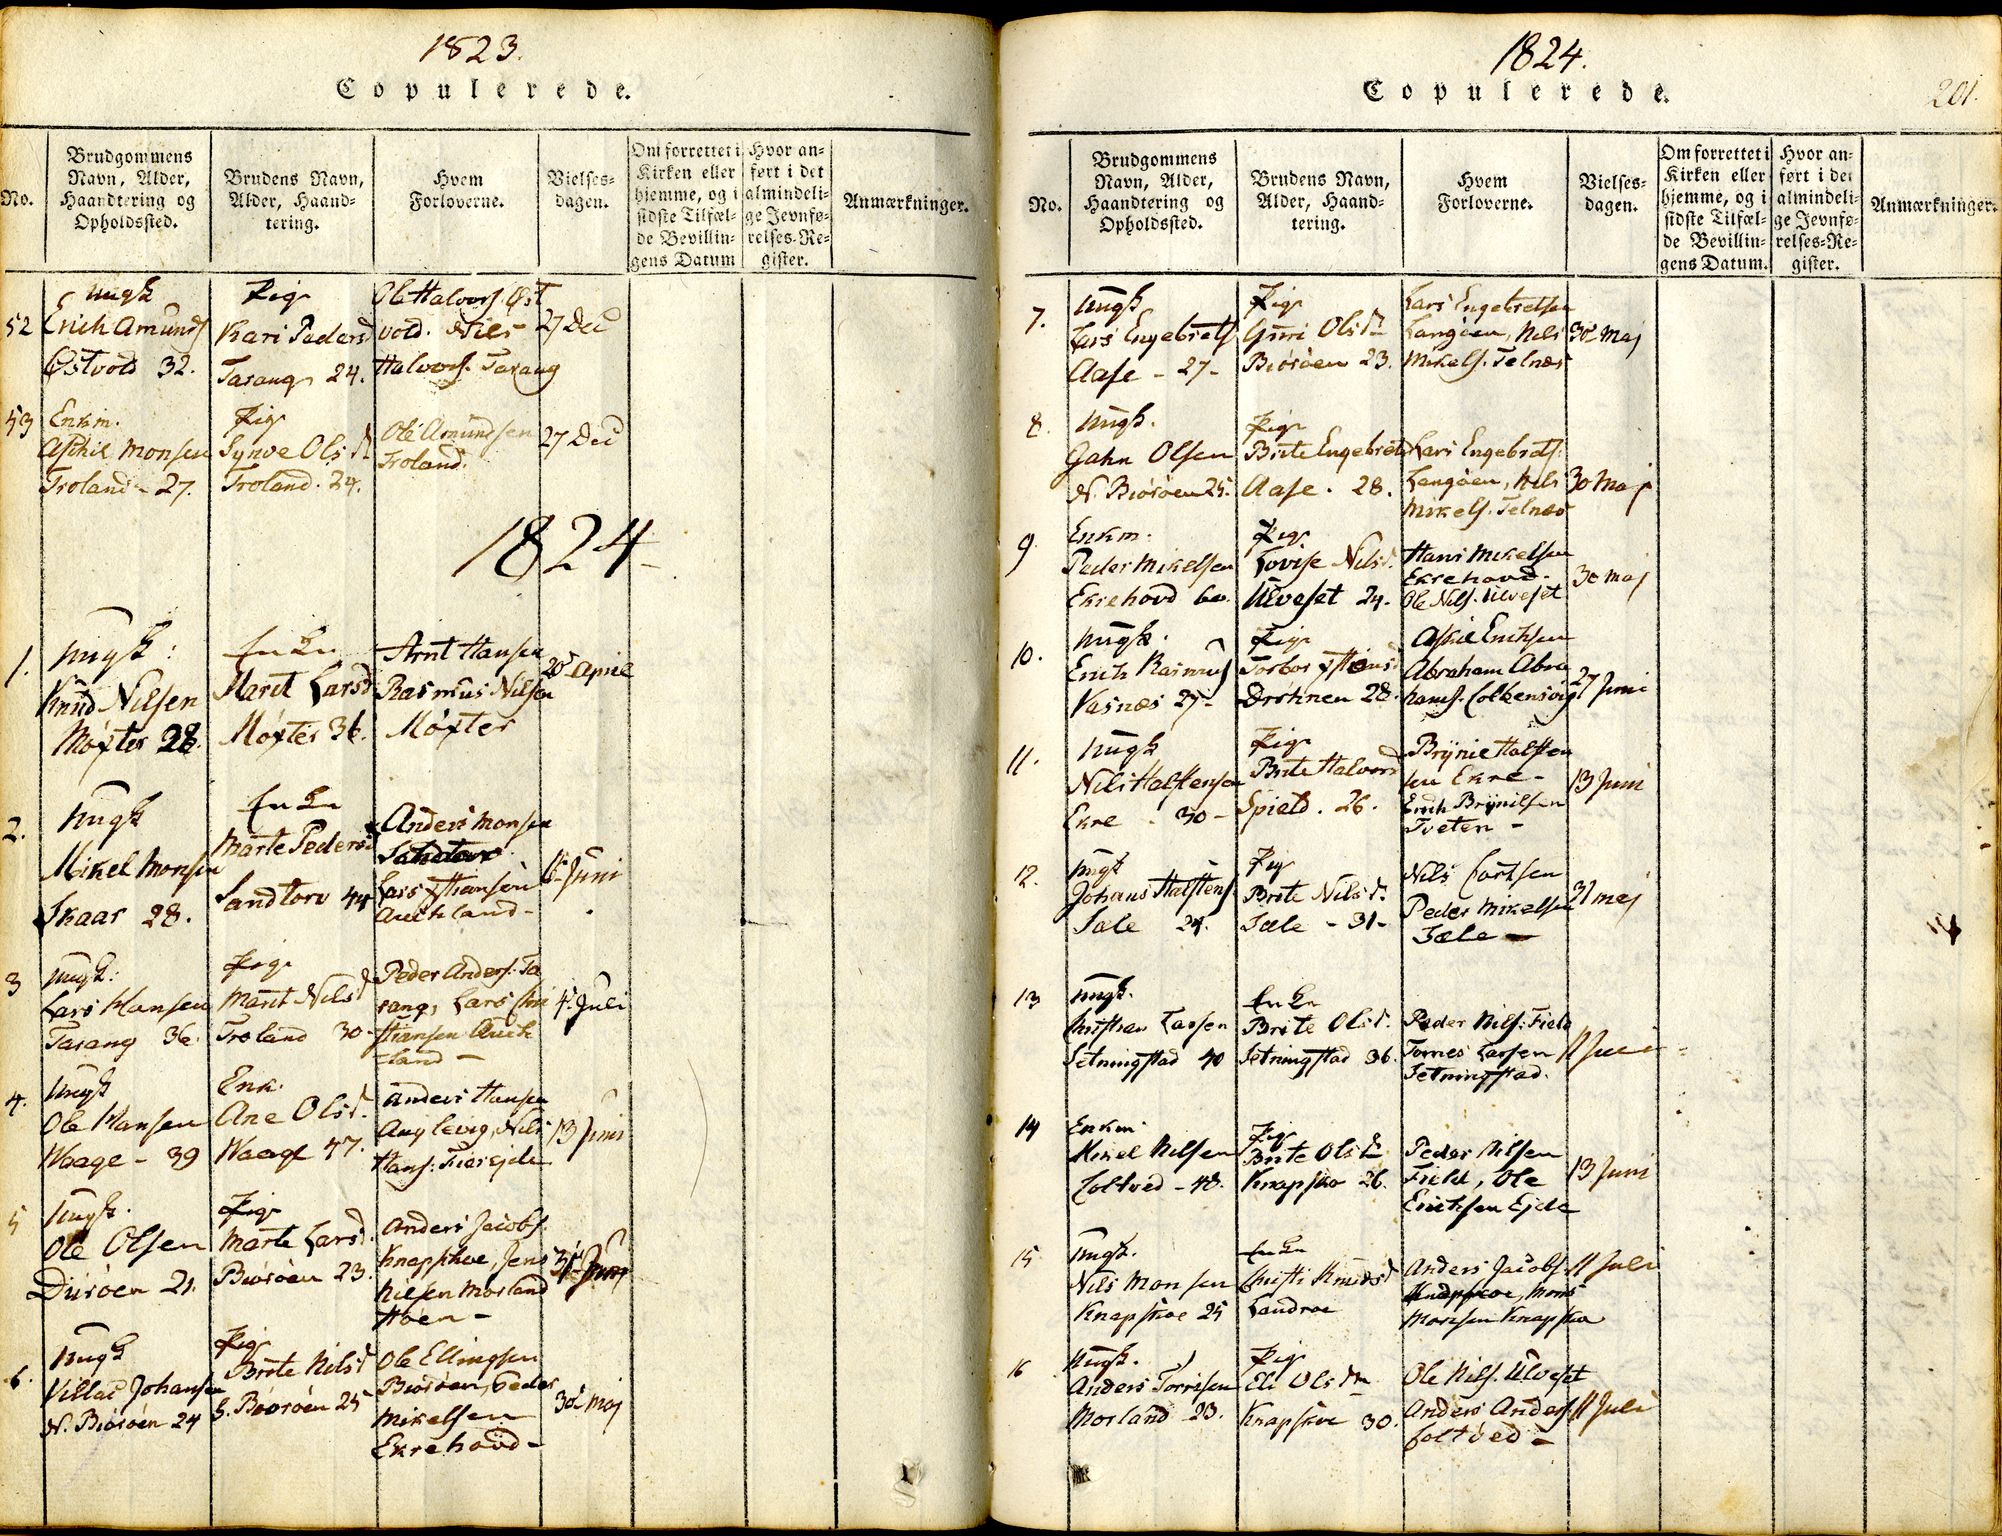 1823.
Copulerede.
No.
Brudgommens
Navn, Alder,
Haandtering og
Opholdssted.
Brudens Navn,
Alder, Haand-
tering.
Hvem
Forloverne.
Vielses-
dagen.
Om forrettet i
Kirken eller
hjemme, og i
sidste Tilfæl-
de Bevillin-
gens Datum
Hvor an-
ført i det
almindeli-
ge Jevnfø-
relses-Re-
gister.
Anmærkninger.
52
Ungk
Erich Amunds
Østvold 32.
Pige
Kari Pedersd
Tarang 24.
Ole Halvors. Øst
vold. Niels
Halvors. Tarang
27 Dec
53
Enkm.
Askiel Monsen
Troland - 27.
Pige
Synve Olsd
Troland. 24.
Ole Amundsen
Troland.
27 Dec
1824
1.
Ungk:
Knud Nilsen
Møxter 28.
Enke
Marit Larsd
Møxter 36.
Arnt Hansen
Rasmus Nilsen
Møxter
20d April
2.
Ungk
Mikel Monsen
Skaar 28.
Enke
Marte Pedersd
Sandtorv 44
Anders Monsen
Sandtorv
Lars Xstiansen
Auchland-
Juni
3
Ungk:
Lars Hansen
Tarang 36.
Pige
Marit Nilsd
Troland 30-
Peder Anders. Ta
rang, Lars Chri
stiansen Auck
land-
4. Juli
4.
Ungk
Ole Hansen
Waage - 39
Enk.
Ane Olsd.
Waage 47.
Anders Hansen
Nils
Hans.
13 Juni
5
Ungk.
Ole Olsen
Duroen 21.
Pige
Marte Larsd.
Biøroen 23.
Anders Jacobs.
Knapskoe, Jens
Nilsen Morland
Høen-
6.
Ungk
Villas Johansen
N. Biøröen 24
Pige
Brite Nilsd
S. Biøröen 25
Ole Ellingsen
Biøröen, Peder
Mikelsen
Ekrehovd-
30d Maj
1824.
201.
Copulerede.
No.
Brudgommens
Navn, Alder,
Haandtering og
Opholdssted.
Brudens Navn,
Alder, Haand-
tering.
Hvem
Forloverne.
Vielses-
dagen.
Om forrettet i
Kirken eller
hjemme, og i
sidste Tilfæl-
de Bevillin-
gens Datum.
Hvor an-
ført i det
almindeli-
ge Jevnfø-
relses-Re-
gister.
Anmærkninger.
7.
Ungk
Lars Engebrets
Aase - 27-
Pige
Guri Olsdr
Biøröen 23.
Lars Engebretsen
Langöen, Nils
Mikels. Telnæs
30d Maj
8.
Ungk.
Gahn Olsen
N. Biøröen 25.
Pige
Brite Engebretsd
Aase. 28.
Lars Engebrets.
Langöen, Nils
Mikels. Telnæs
30 Maj
9.
Enkm.
Peder Mikelsen
Ekrehovd 60.
Pige
Lovise Nilsd.
Ulveset 24.
Hans Mikelsen
Ekrehovd.
Ole Nils. Ulveset
30 Maj
10.
Ungk.
Erich Rasmus
Vasnæs 27-
Pige
Torbor Xstiansd
Drøhnen 28.
Askiel Erichsen
Abraham Abra
hams. Colbensvig
27 Juni
11.
Ungk
Nils Halstensen
Ekre - 30-
Pige
Brite Halvorsd
Spield. 26.
Brynie Halsten
sen Ekre-
Erich Brynilsen
Tveten-
13 Juni
12.
Ungk
Johans Halstens.
Sæle 24.
Pig
Brite Nilsd.
Sæle - 31-
Nils Cortsen
Peder Mikelsen
Sæle-
31 Maj
13
Ungk.
Christian Larsen
Setningstad 40
Enke
Brite Olsd.
Setningstad 36.
Peder Nils. Field
Tomes Larsen
Setningstad.
11 Juli
14
Enkm
Mikel Nilsen
Coltved - 48.
Pig
Brite Olsdr
Knapskoe 26.
Peder Nilsen
Field, Ole
Erichsen Ejde
13 Juni
15
Ungk.
Nils Monsen
Knapskoe 25
Enke
Christi Knudsd
Landroe
Anders Jacobs.
Knapskoe, Mons
Monsen Knapskoe
11 Juli
16
Ungk.
Anders Torrisen
Morland 23.
Pige
Eli Olsdr
Knapskoe 30.
Ole Nils. Ulveset
Anders Anders.
Coltved-
11 Juli